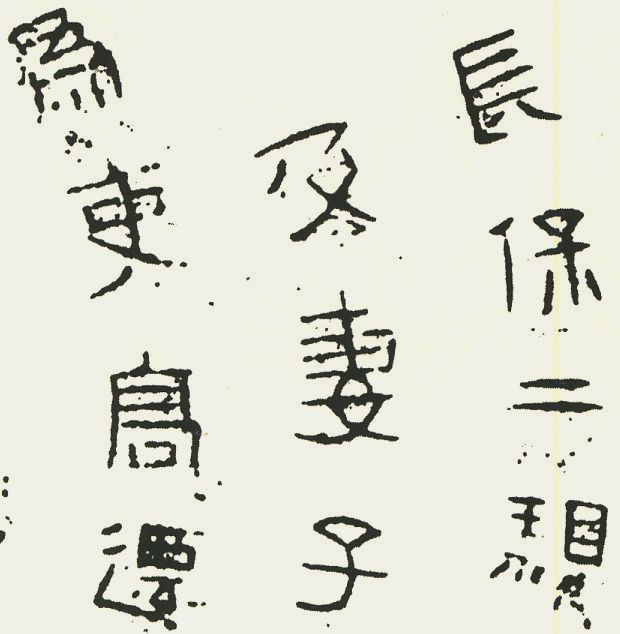 長保二親
及妻子
為吏高遷